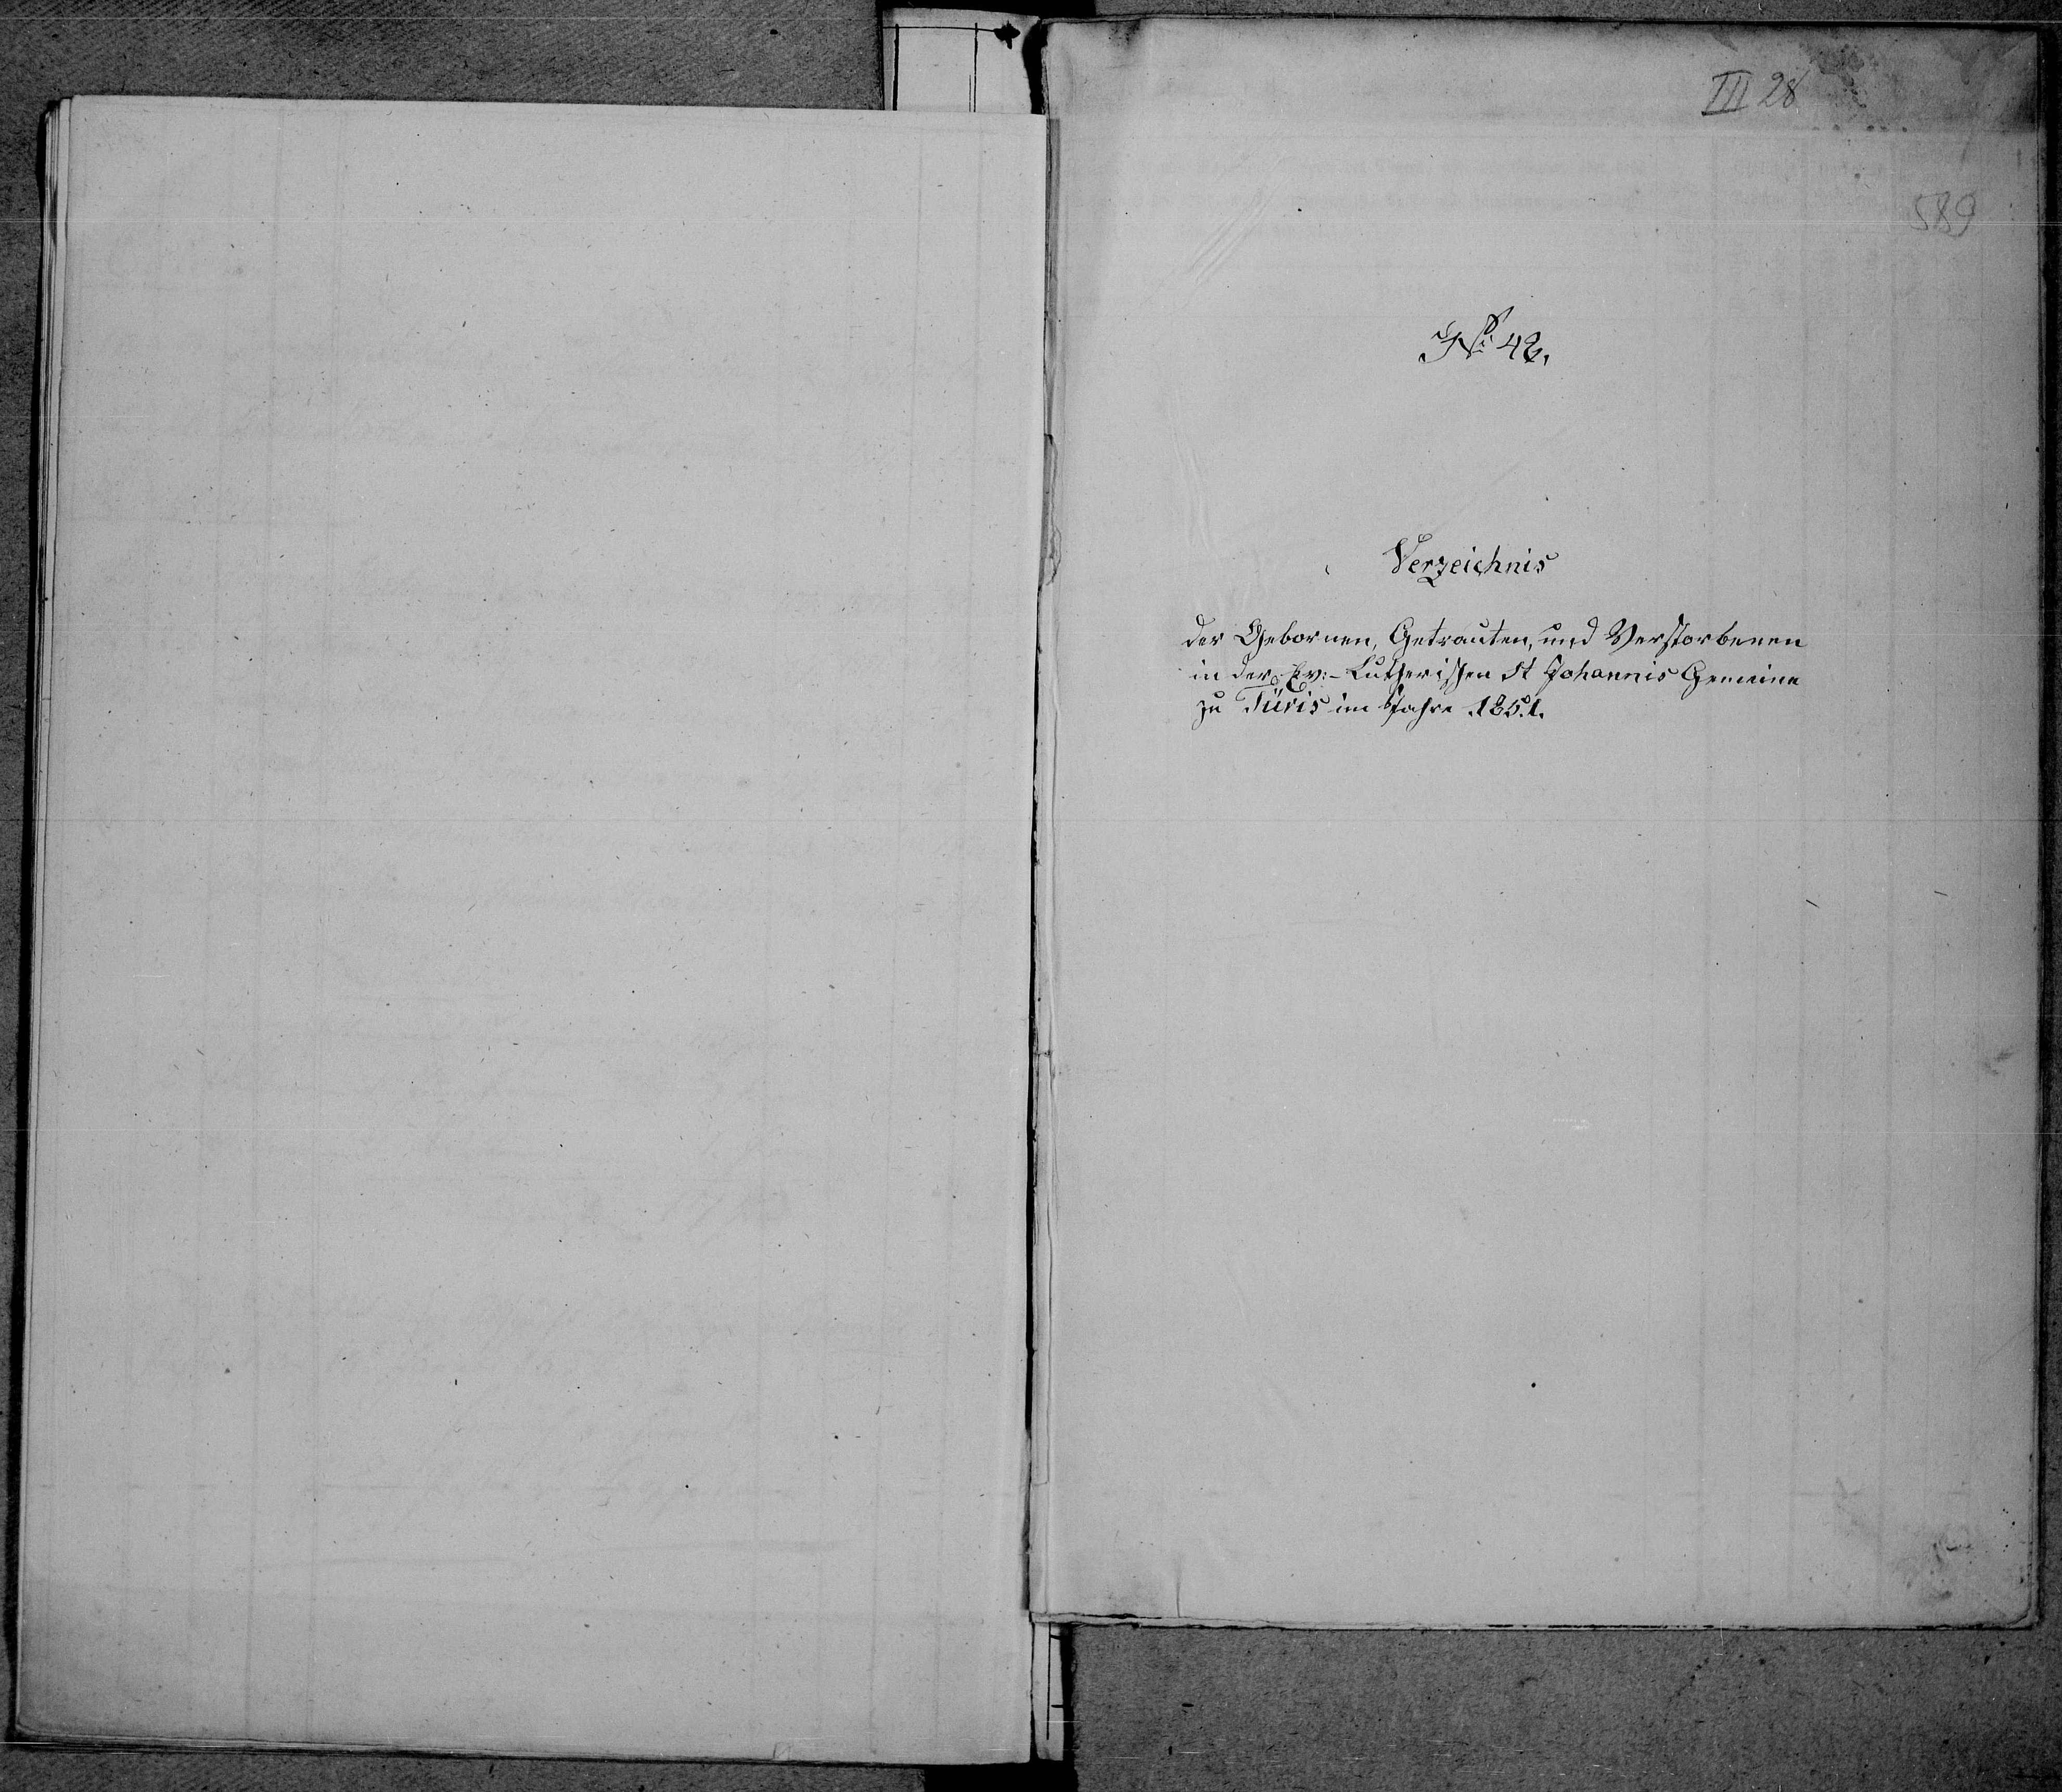 III 28
589
No 42.
Verzeichnis
der Gebornen, Getrauten, und Verstorbenen
in der Ev:-Lutherischen St Johannis Gemeine
zu Tüvis im Jahre 1851.